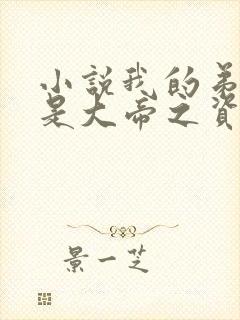 小説我的弟
是大帝之資
景一芝